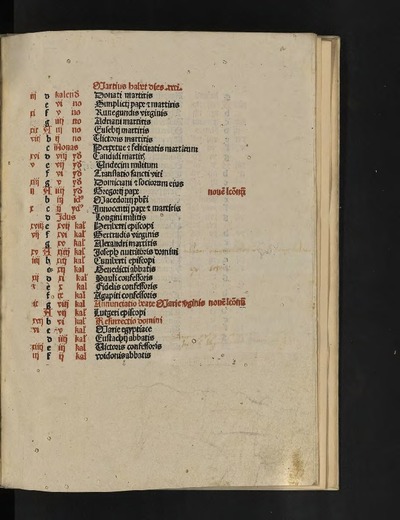 Martius habet dies .xxxi.
iij d kalend Donati martiris
e vi no Simplicij pape et martiris
xi f v no Kunegundis virginis
g iiij no Adriani martiris
xix A iij no Eusebij martiris
viij b ij no Victoris martiris
c Nonas Perpetue et felicitatis martirum
xvi d viij yd Candidi martiris
v e vij yd Undecim militum
f vi yd Translatio sancti viti
xiij g v yd Domiciani et sociorum eius
ij A iiij yd Gregorij pape noue lectionum
b iij id Macedonij pbri
x c ij yd Innocentij pape et martiris
d Idus Longini militis
xviij e xvij kal Heriberti episcopi
vij f xvi kal Gertrudis virginis
g xv kal Alexandri martiris
xv A xiiij kal Joseph nutritoris domini
iiij b xiij kal Cuniberti episcopi
c xij kal Benedicti abbatis
xij d xi kal Pauli confessoris
i e x kal Fidelis confessoris
f ix kal Agapiti confessoris
ix g viij kal Annunctatio beate Marie virginis noue lectionum
A vij kal Lutgeri episcopi
xvij b vi kal Resurrectio domini
vi c v kal Marie egyptiace
d iiij kal Eustachij abbatis
xiiij e iij kal Victoris confessoris
iij f ij kal widonis abbatis